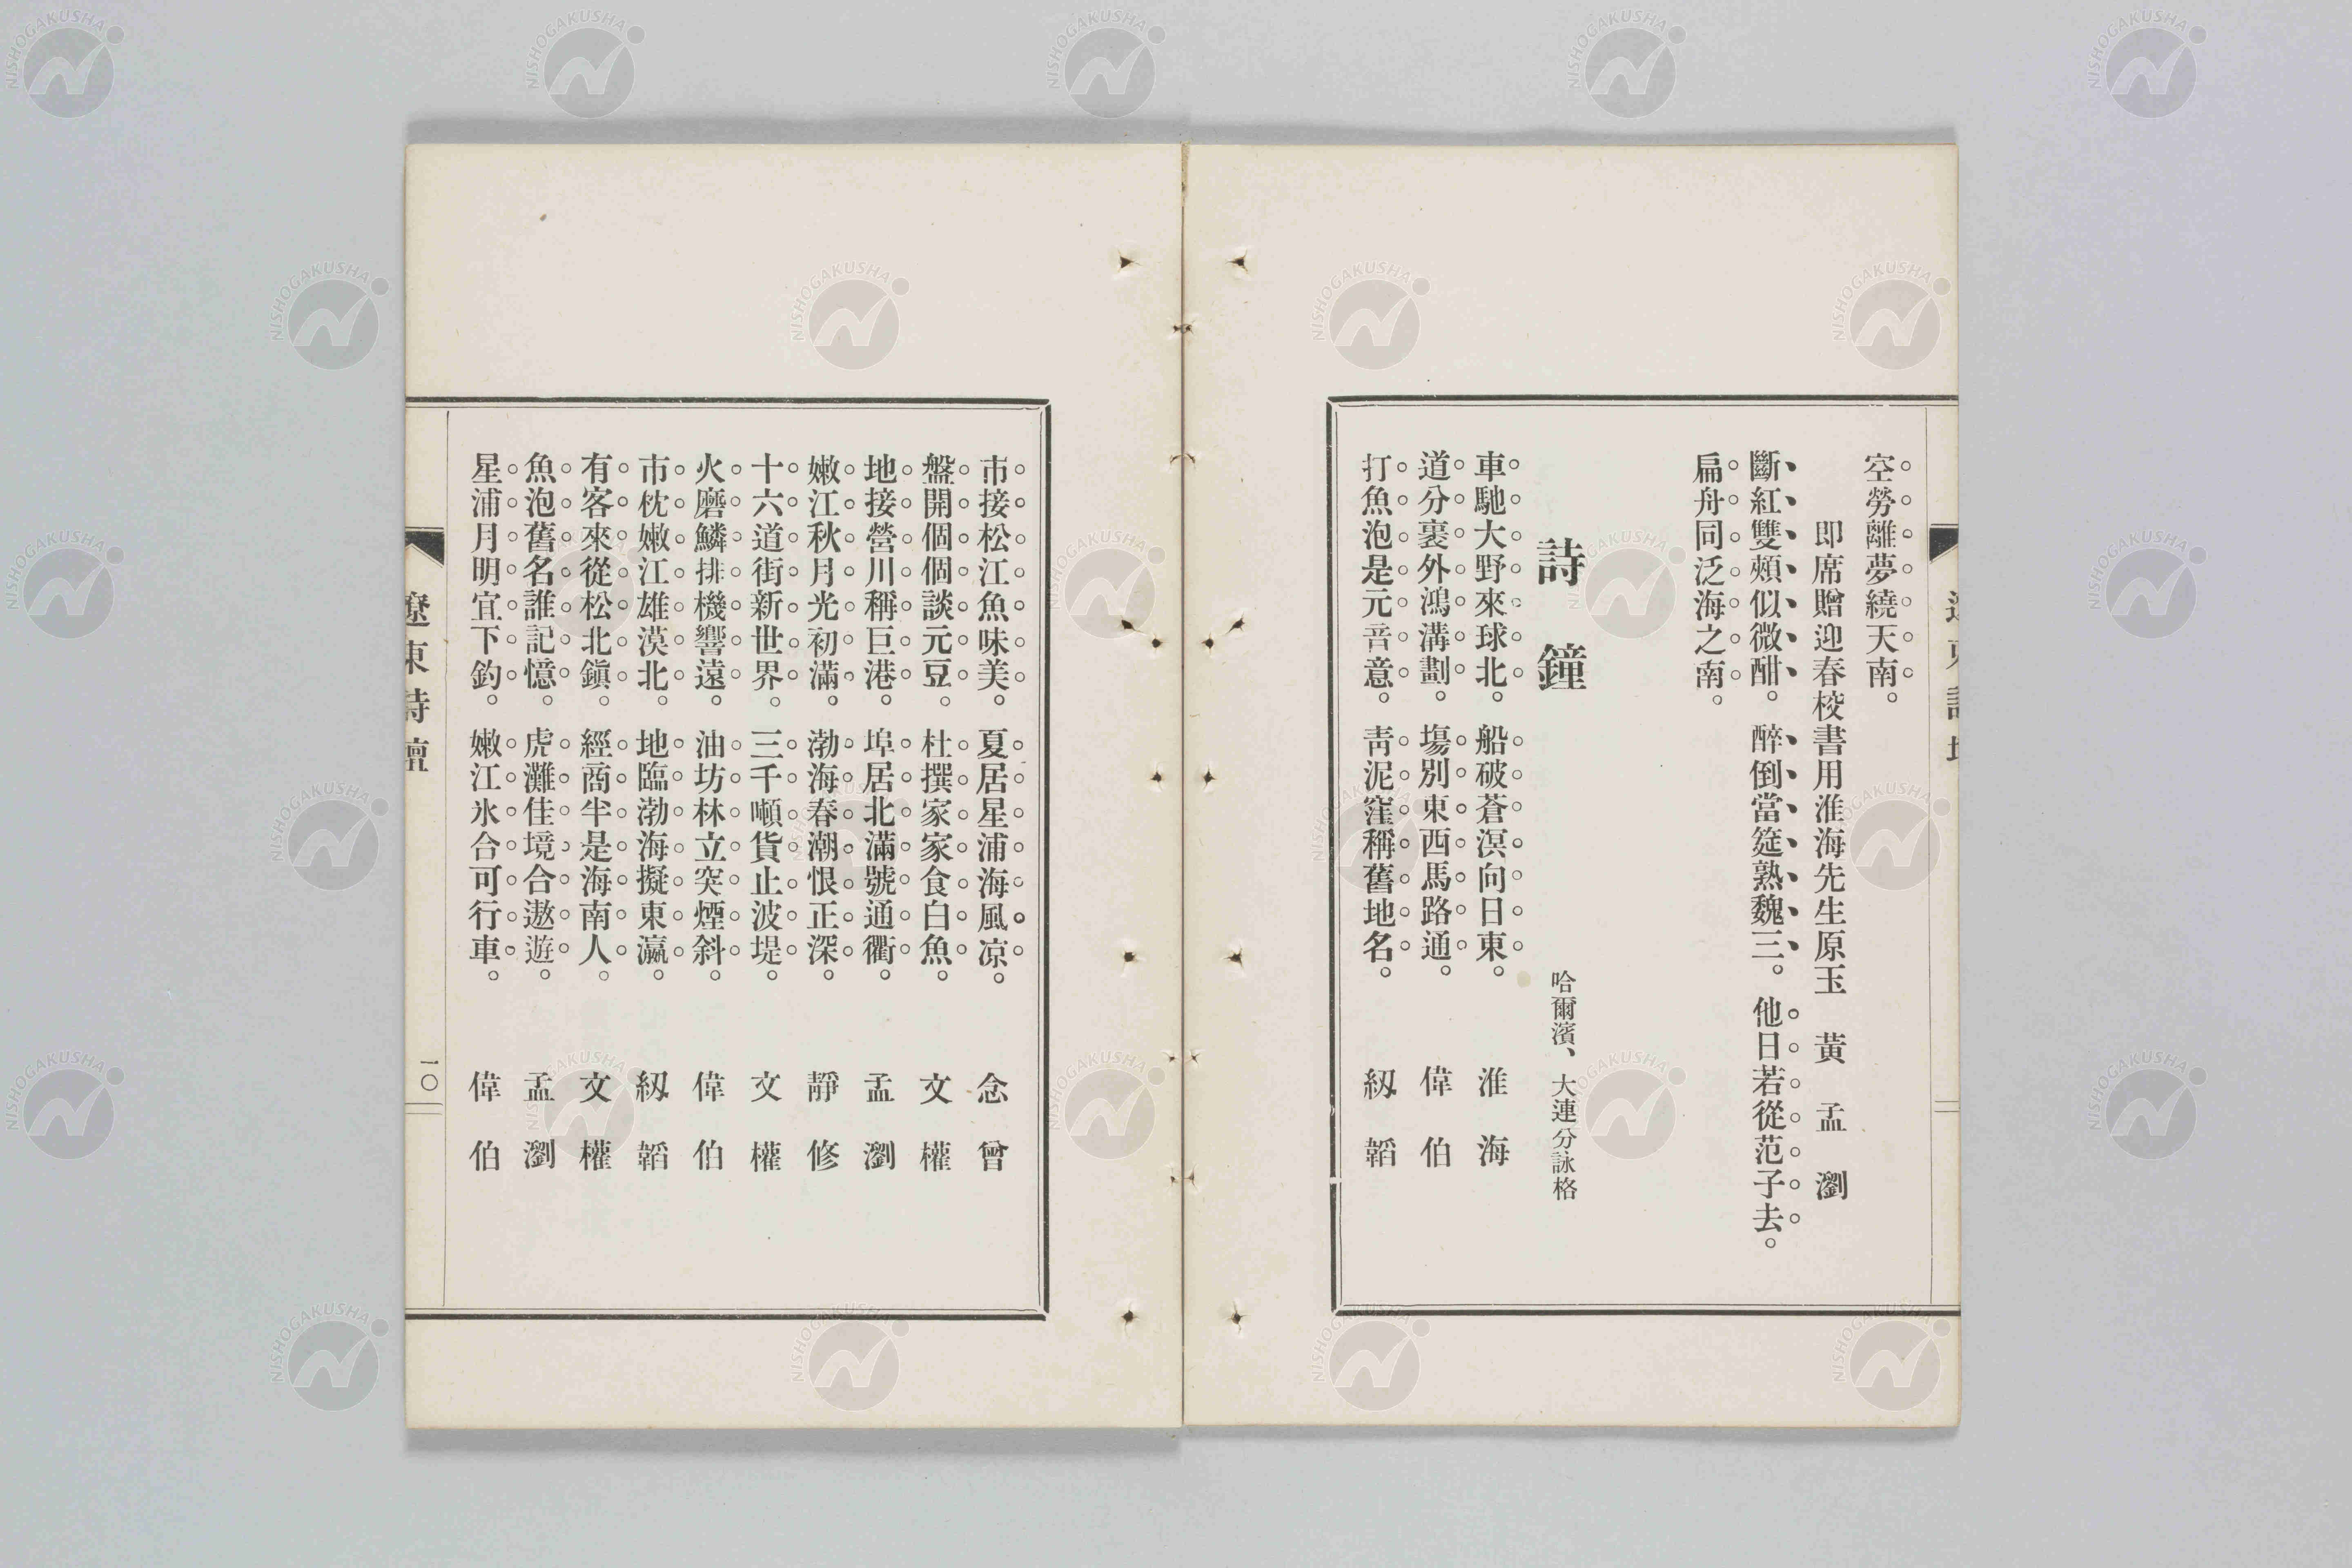 空勞離夢繞天南。
即席贈迎春校書用淮海先生原玉 黃孟瀏
斷紅雙頰似微酣。醉倒當筵熟魏三。他日若從范子去。
扁舟同泛海之南。
詩鐘 哈爾濱、大連分詠格
車馳大野來球北。船破蒼溟向日東。 淮海
道分裏外鴻溝劃。塲別東西馬路通。 偉伯
打魚泡是元音意。靑泥窪稱舊地名。 紉韜
市接松江魚味美。夏居星浦海風凉。 念曾
盤開個個談元豆。杜撰家家食白魚。 文權
地接營川稱巨港。埠居北滿號通衢。 孟瀏
嫩江秋月光初滿。渤海春潮恨正深。 靜修
十六道街新世界。三千噸貨止波堤。 文權
火磨鱗排機響遠。油坊林立突煙斜。 偉伯
市枕嫩江雄漠北。地臨渤海擬東瀛。 紉韜
有客來從松北鎭。經商半是海南人。 文權
魚泡舊名誰記憶。虎灘佳境合遨遊。 孟瀏
星浦月明宜下釣。嫩江氷合可行車。 偉伯
遼東詩壇
一〇
NISHOGAKUSHA